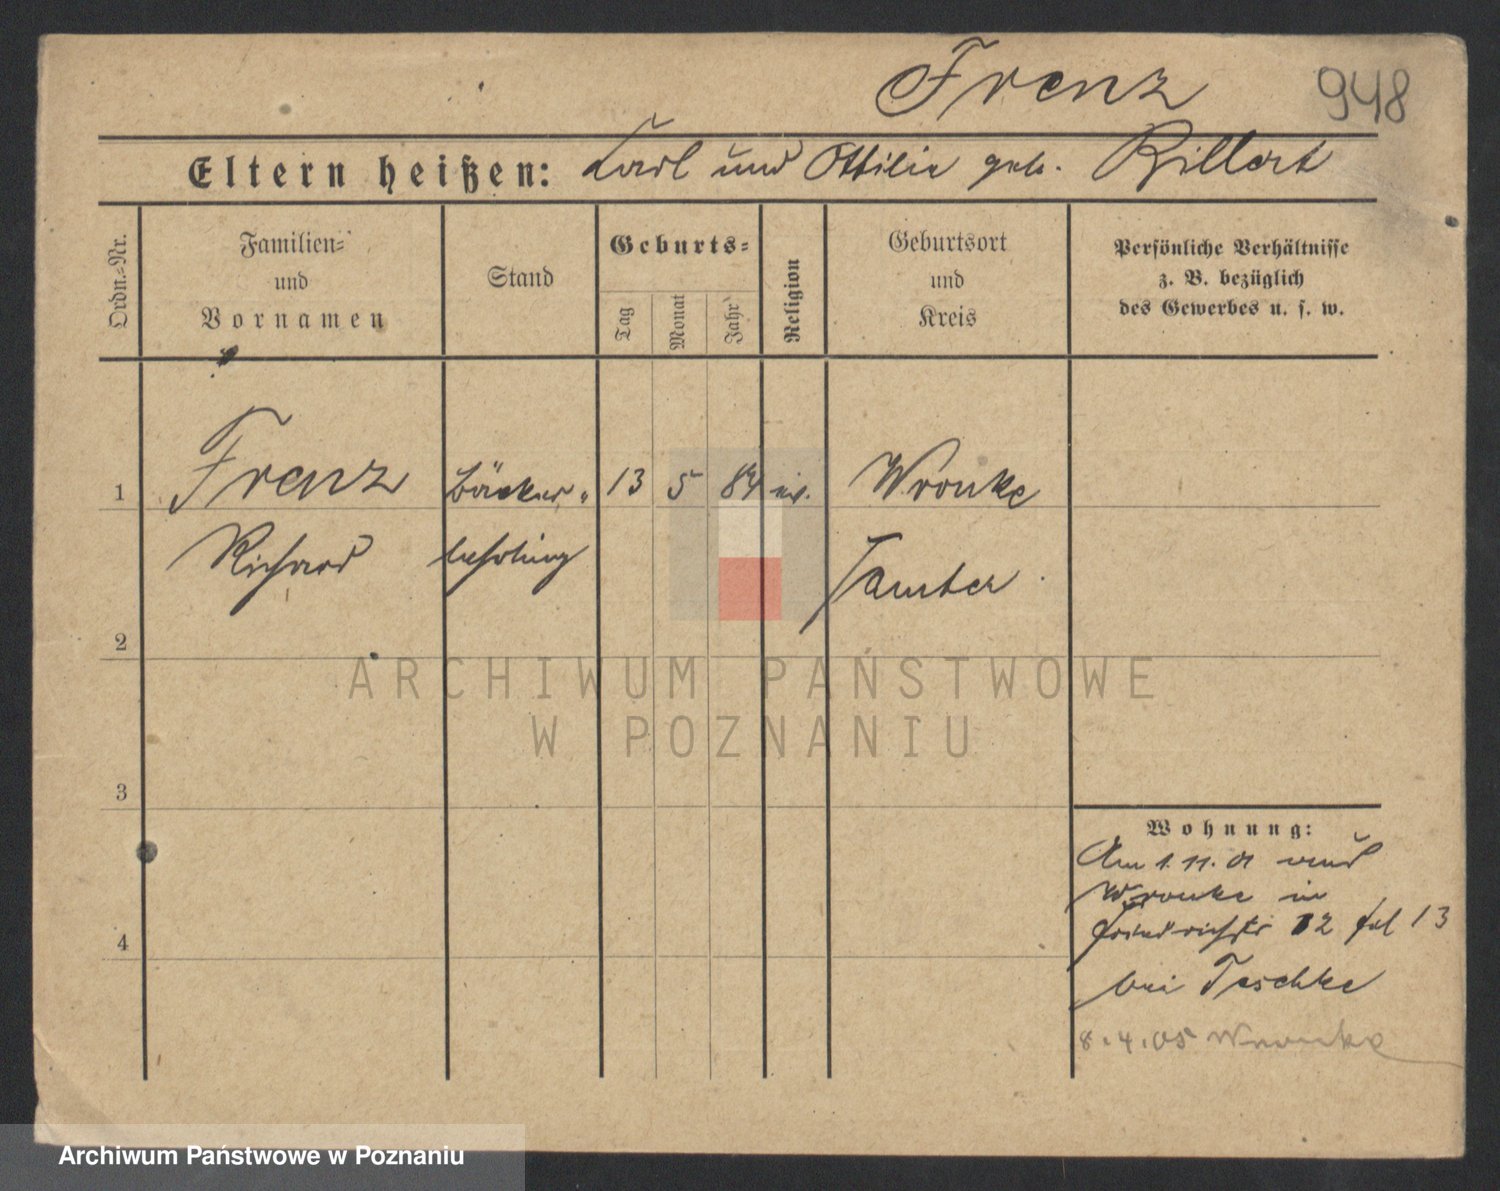 Frenz 948
Eltern heißen: Karl und Ottilie geb. Billert
Ordn.=Nr.
Familien=
und
Vornamen
Stand
Geburts=
Tag
Monat
Jahr
Religion
Geburtsort
und
Kreis
Persönliche Verhältnisse
z. B. bezüglich
des Gewerbes u. s. w.
1 Frenz Bäcker- 13 5 84 ev. Wronke
Richard lehrling Samter
2
ARCHIWUM PAŃSTWOWE
W POZNANIU
3
4
Wohnung:
Am 1.11.01 von
Wronke in
Friedrichstr 12
bei Teschke
8.4.05 Wronke
Archiwum Państwowe w Poznaniu